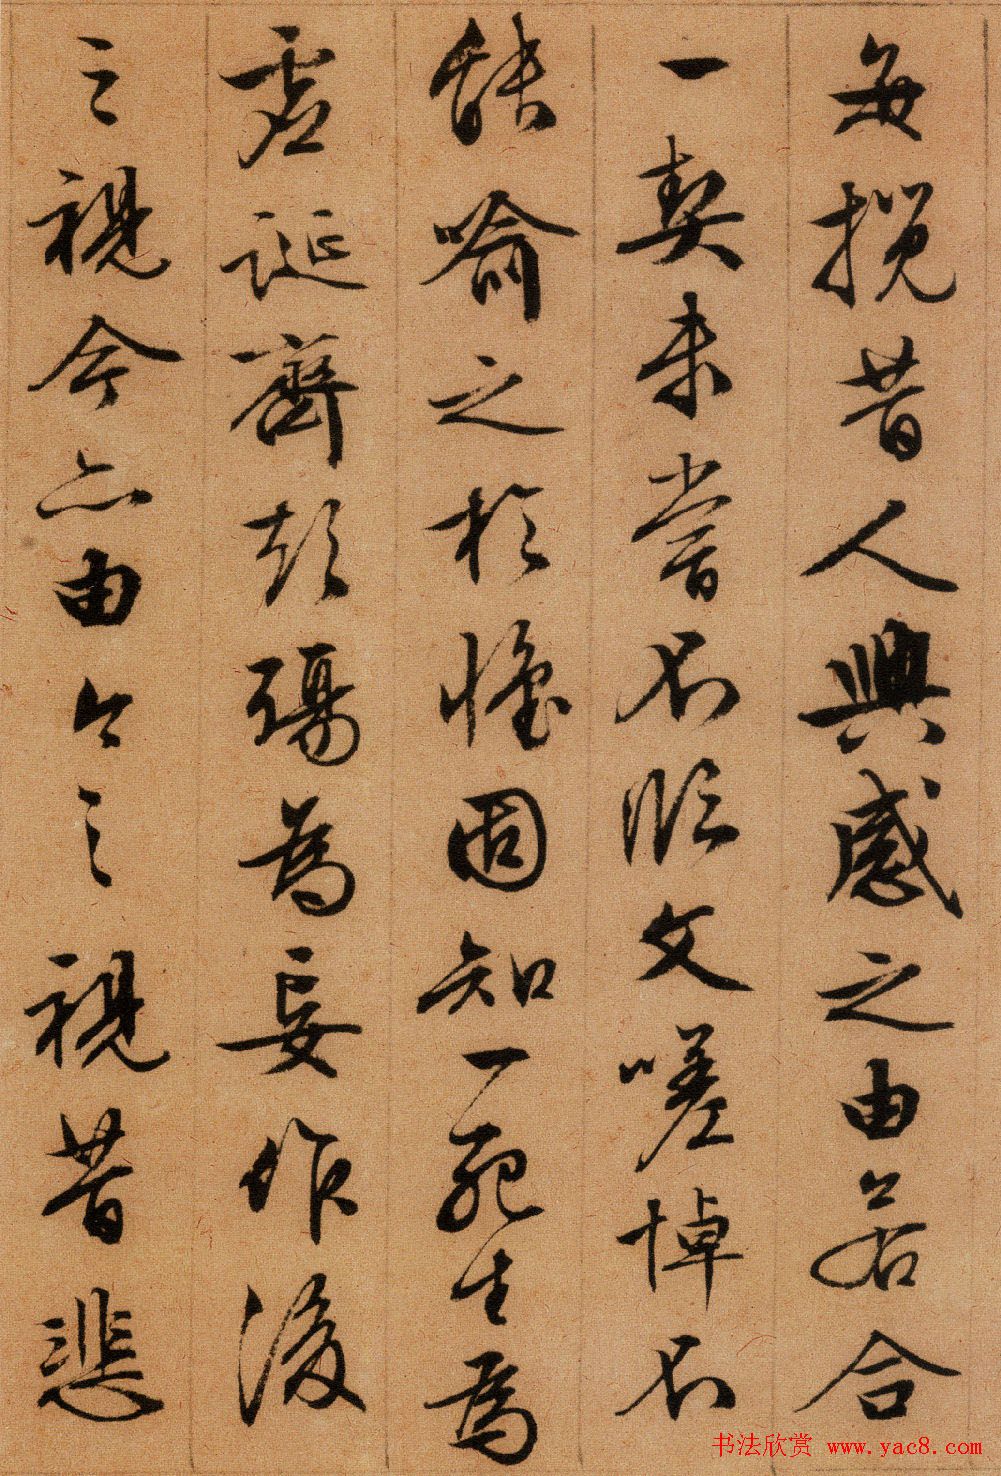 每攬昔人興感之由若合
一契未嘗不臨文嗟悼不
能喻之於懷固知一死生為
虛誕齊彭殤為妄作後
之視今亦由今之視昔悲
书法欣赏 www.yac8.com